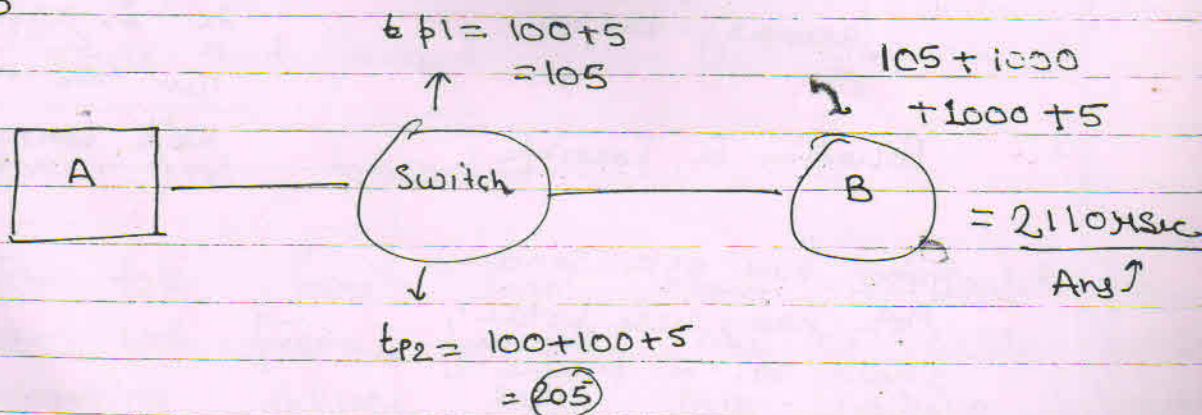 t p1 = 100+5
= 105
105 + 1000
+ 1000 + 5
A
Switch
B
= 2110 μsec
Ans
tp2 = 100+100+5
= 205